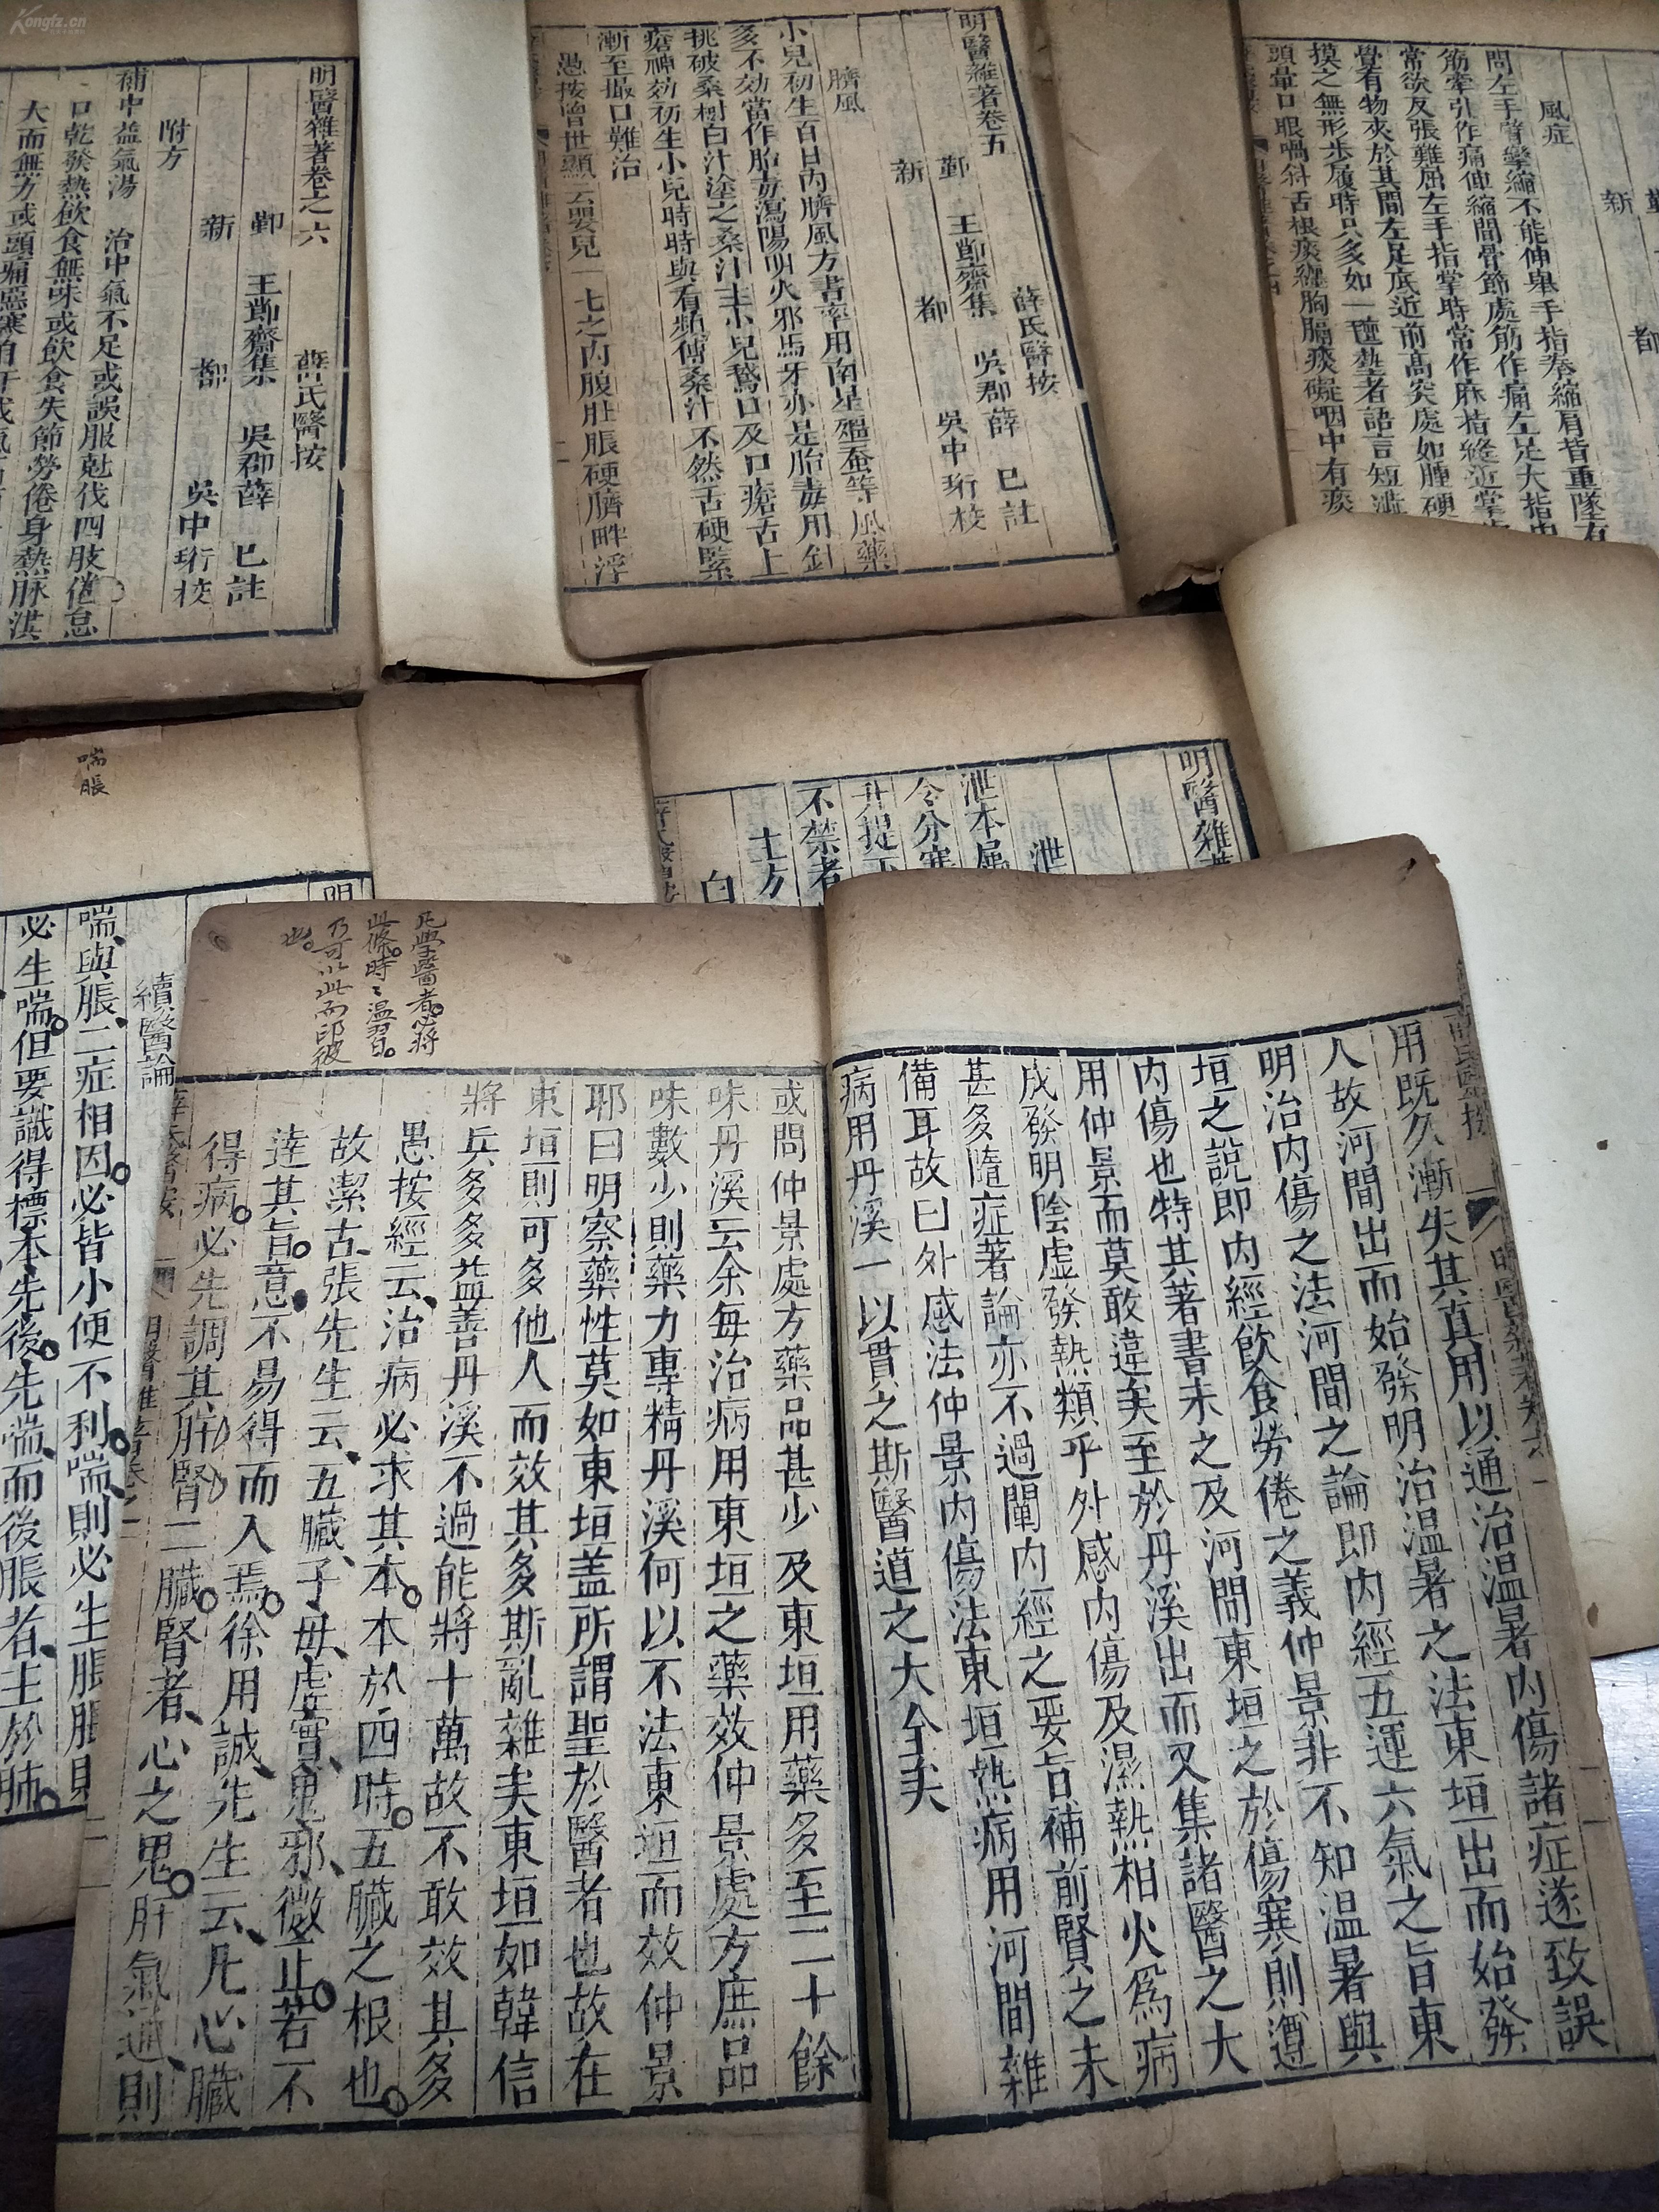 Kongfz.cn
明醫雜著卷之六
薛氏醫按
鄞 王節齋集 吳郡薛 已註
新 都 吳中珩校
附方
補中益氣湯 治中氣不足或誤服尅伐四肢倦怠
口乾發熱飲食無味或飲食失節勞倦身熱脉洪
大而無方或頭痛惡寒自汗或氣
明醫雜著卷五
薛氏醫按
鄞 王節齋集 吳郡薛 已註
新 都 吳中珩校
臍風
小兒初生百日內臍風方書率用南星殭蚕等風藥
多不効當作胎毒瀉陽明火邪馬牙亦是胎毒用針
挑破桑樹白汁塗之桑汁主小兒鵞口及口瘡舌上
瘡神効初生小兒時時與看頻傅桑汁不然舌硬緊
漸至撮口難治
愚按曾世顯云嬰兒一七之內腹肚脹硬臍畔浮
鄞
新 都
風症
問左手臂攣縮不能伸舉手指拳縮肩背重墜有
筋牽引作痛伸縮間骨節處筋作痛左足大指
常欲反張難屈左手指掌時常作麻指縫近掌
覺有物夾於其間左足底近前高突處如腫硬
摸之無形步履時只多如一壅熱者語言短澁
頭暈口眼喎斜舌根痰纏胸膈痰礙咽中有痰
喘脹
續醫論
喘與脹二症相因必皆小便不利喘則必生脹脹則
必生喘但要識得標本先後先喘而後脹者主於肺
明醫雜
泄
泄本屬
令分寒
升提下
不禁者
土方
白
用既久漸失其真用以通治温暑內傷諸症遂致誤
人故河間出而始發明治温暑之法東垣出而始發
明治內傷之法河間之論即內經五運六氣之旨東
垣之説即內經飲食勞倦之義仲景非不知温暑與
內傷也特其著書未之及河間東垣之於傷寒則遵
用仲景而莫敢違矣至於丹溪出而又集諸醫之大
成發明陰虚發熱類乎外感內傷及濕熱相火爲病
甚多隨症著論亦不過闡內經之要旨補前賢之未
備耳故曰外感法仲景內傷法東垣熱病用河間雜
病用丹溪一以貫之斯醫道之大全矣
凡學醫者必將
此條時時温習
乃可以此而印彼
也
或問仲景處方藥品甚少及東垣用藥多至二十餘
味丹溪云余每治病用東垣之藥效仲景處方庶品
味數少則藥力專精丹溪何以不法東垣而效仲景
耶曰明察藥性莫如東垣盖所謂聖於醫者也故在
東垣則可多他人而效其多斯亂雜矣東垣如韓信
將兵多多益善丹溪不過能將十萬故不敢效其多
愚按經云治病必求其本本於四時五臟之根也
故潔古張先生云五臟子母虛實鬼邪微正若不
達其旨意不易得而入焉徐用誠先生云凡心臟
得病必先調其肝腎二臟腎者心之鬼肝氣通則